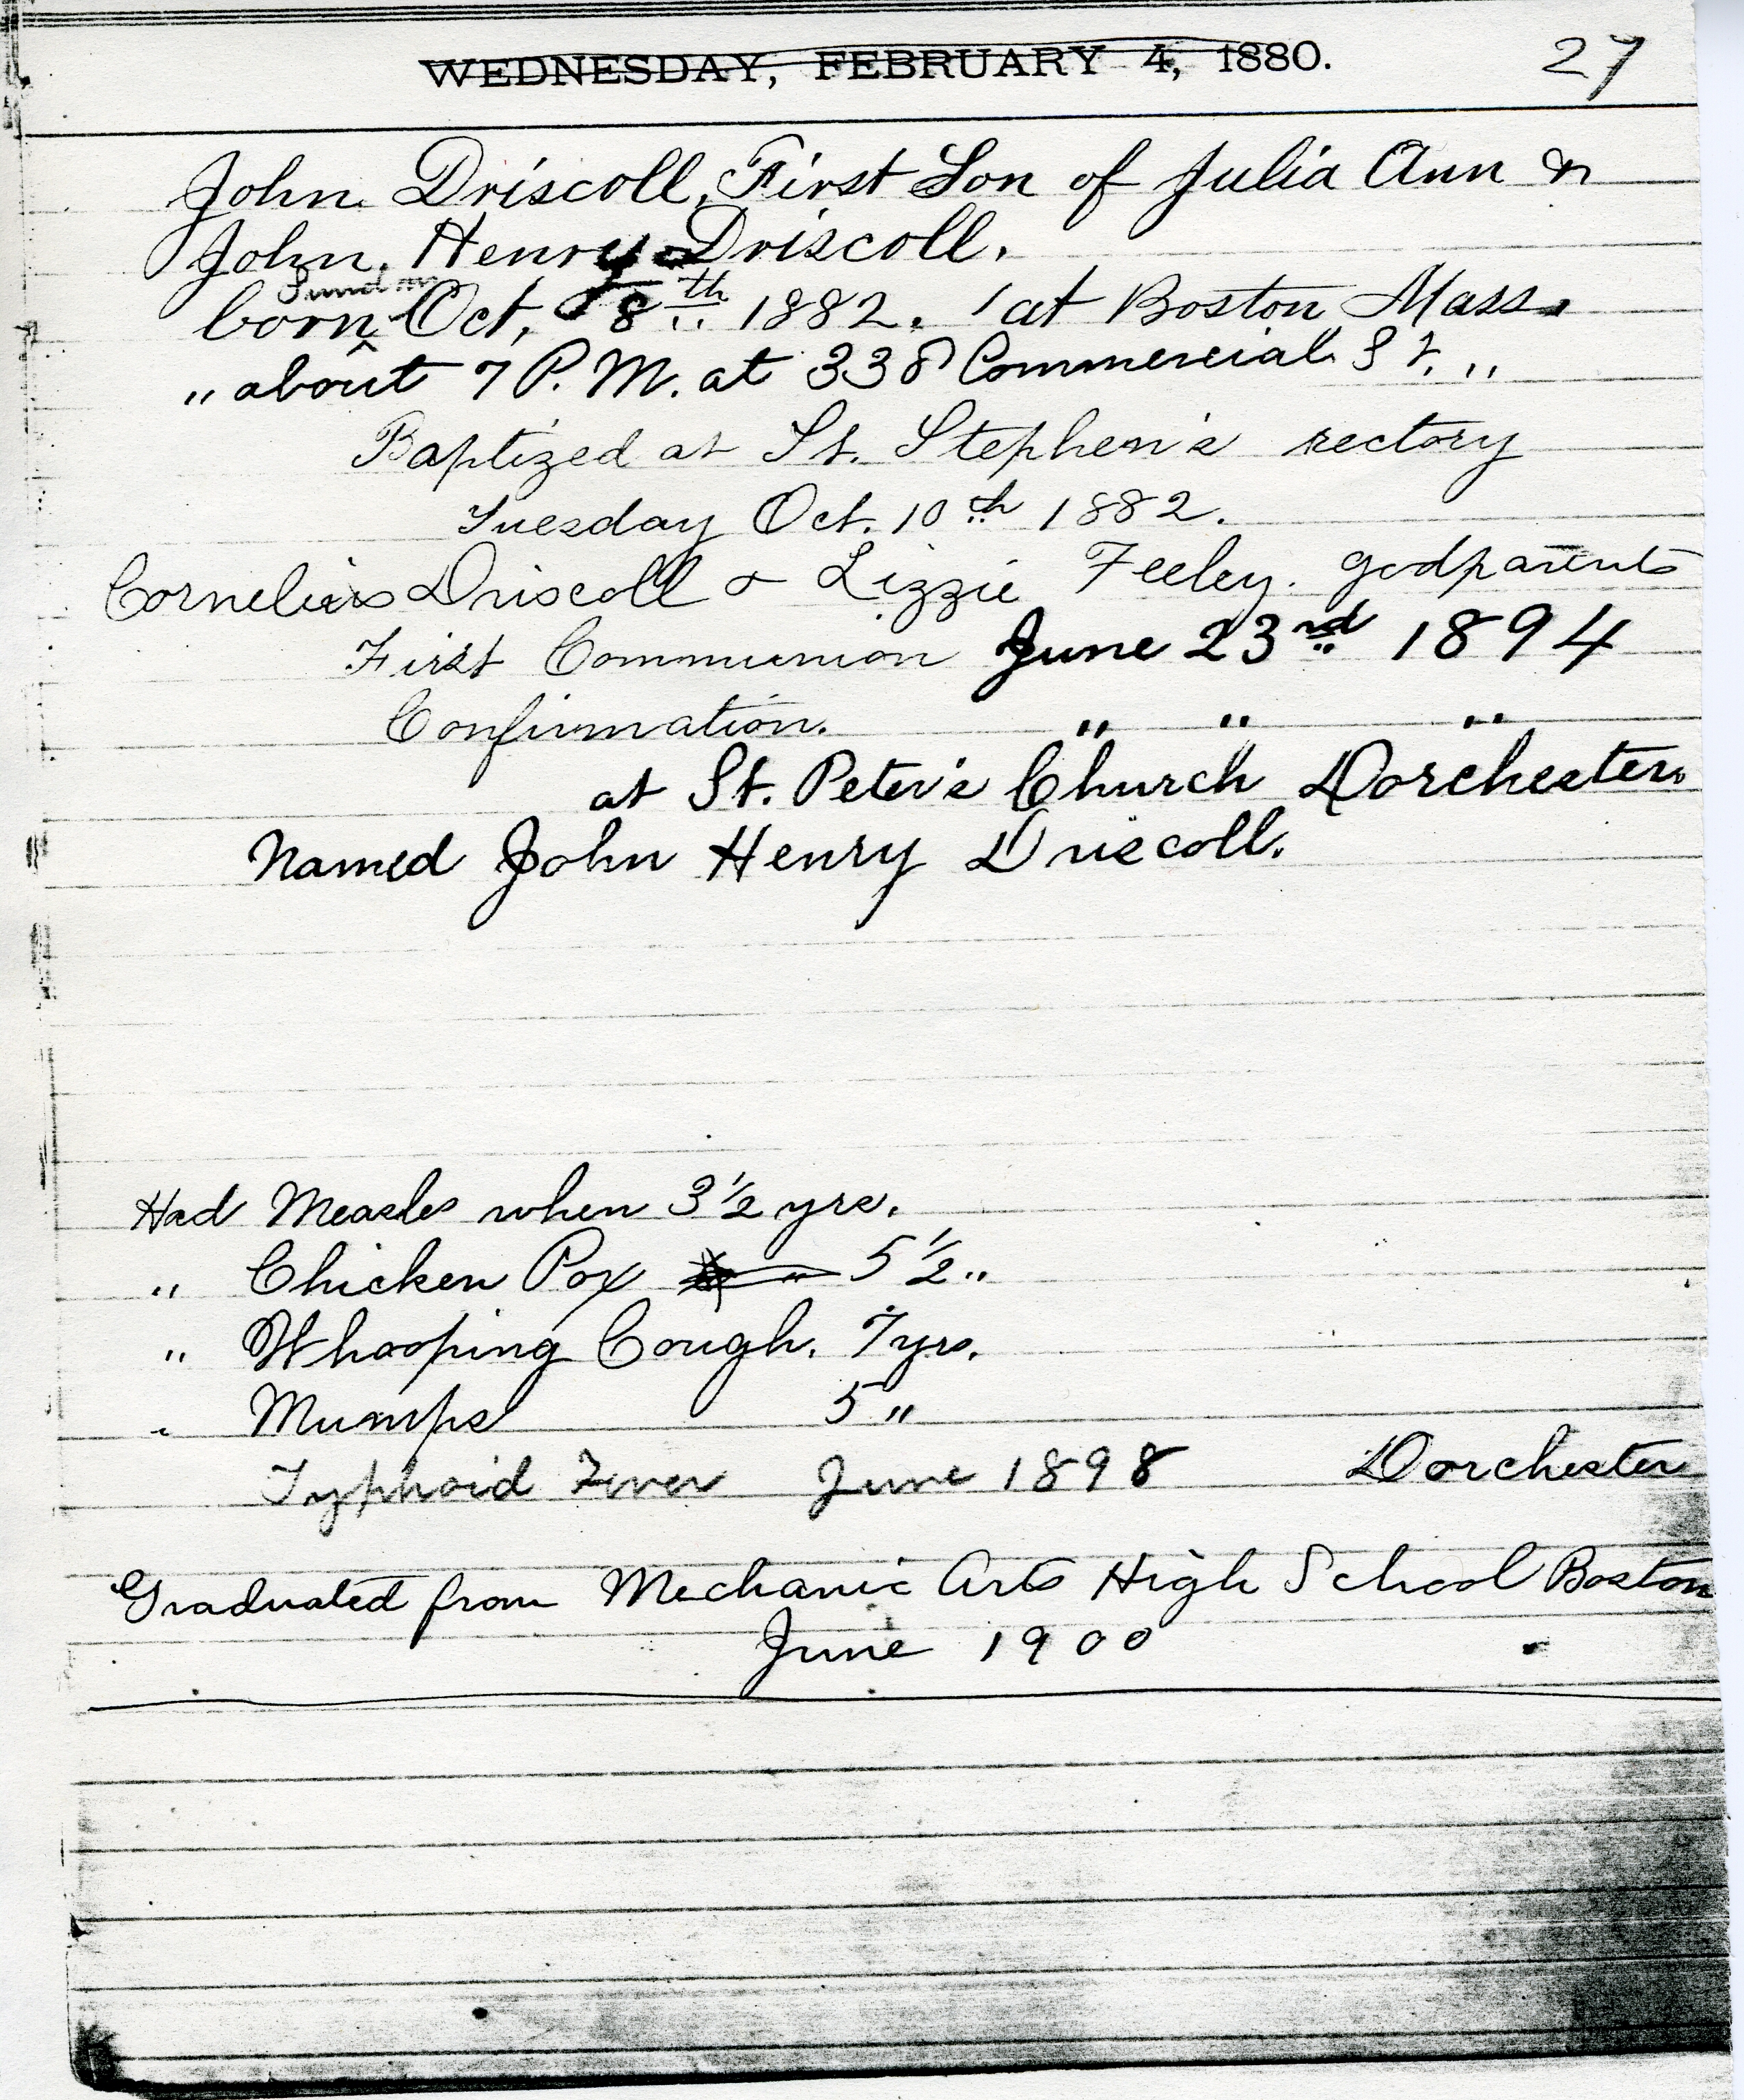 WEDNESDAY, FEBRUARY 4, 1880. 27
John Driscoll, First Son of Julia Ann &
John Henry Driscoll.
Sunday
born Oct. 8th 1882. at Boston Mass.
" about 7 P.M. at 338 Commercial St. "
Baptized at St. Stephen's rectory
Tuesday Oct. 10th 1882.
Cornelius Driscoll & Lizzie Feeley. godparents
First Communion June 23rd 1894
Confirmation. " " "
at St. Peter's Church Dorchester.
Named John Henry Driscoll.
Had Measles when 3 1/2 yrs.
" Chicken Pox 5 1/2 "
" Whooping Cough. 7 yrs.
" Mumps 5 "
Typhoid Fever June 1898 Dorchester
Graduated from Mechanic Arts High School Boston
June 1900